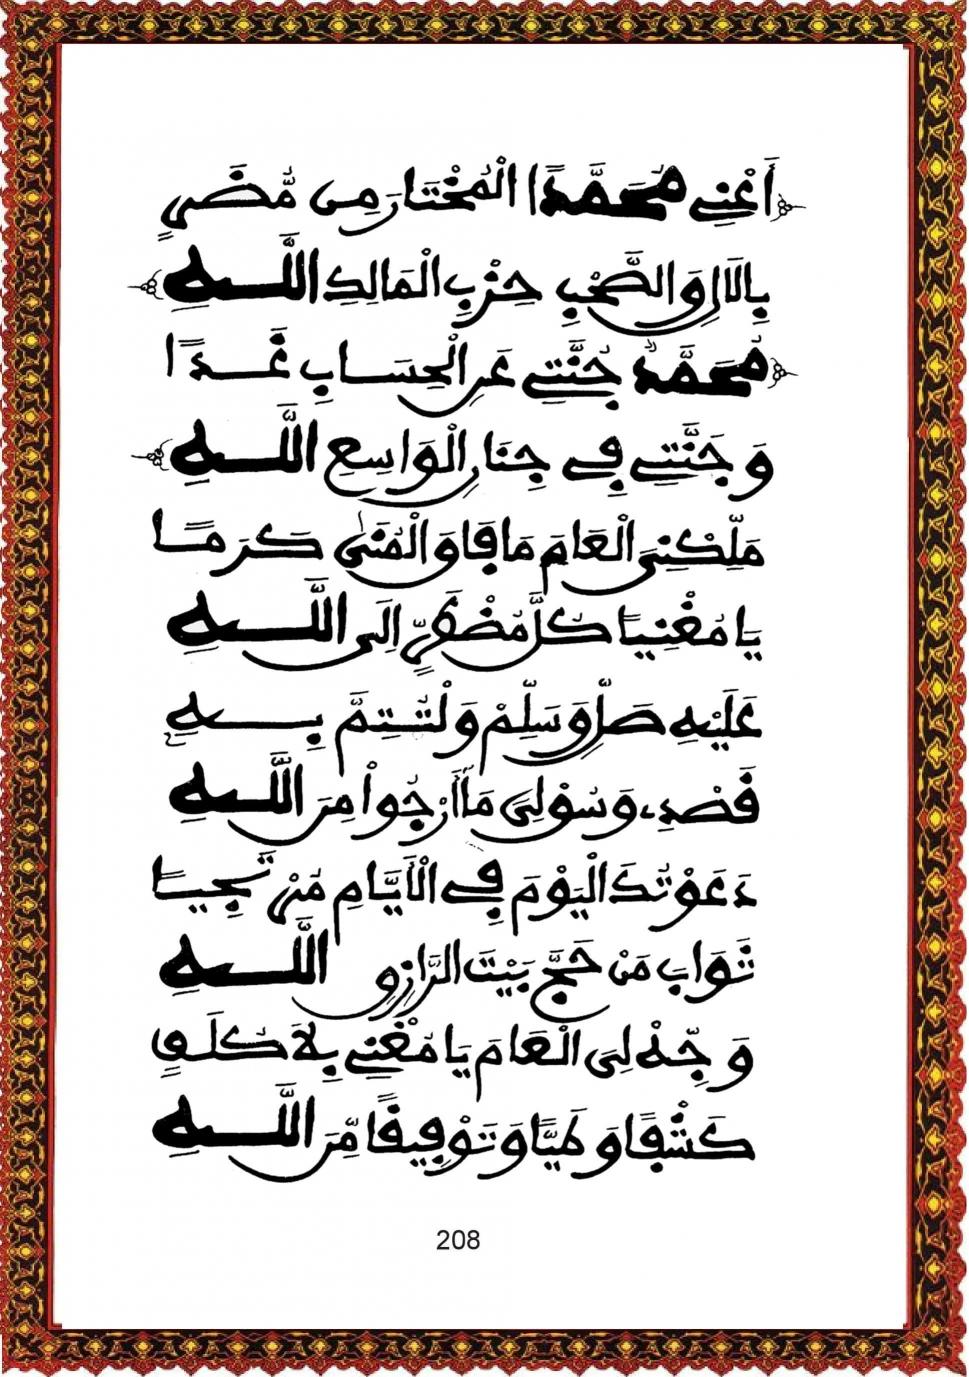 أَعْنِي مُحَمَّدًا الْمُخْتَارَ مِن مُّضَرٍ
بِالَالِ وَالصَّحْبِ حِزْبِ الْمَالِكِ اللَّهِ
مُحَمَّدٌ جُنَّتِي عَنِ الْحِسَابِ غَدًا
وَجَنَّتِي فِي جِنَانِ الْوَاسِعِ اللَّهِ
مَلِّكْنِيَ الْعَامَ مَا فَاقَ الْمُنَىٰ كَرَمًا
يَا مُغْنِيًا كُلَّ مُضْطَرٍّ إِلَى اللَّهِ
عَلَيْهِ صَلِّ وَسَلِّمْ وَلْتُتِمَّ بِهِ
قَصْدِي وَسُؤْلِيَ مَا أَرْجُواْ مِنَ اللَّهِ
دَعَوْتُكَ الْيَوْمَ فِي الْأَيَّامِ مُنْ تَجِيًا
ثَوَابَ مَنْ حَجَّ بَيْتَ الرَّازِقِ اللَّهِ
وَجِّهْ لِيَ الْعَامَ يَا مُغْنِي بِلَا كُلَفٍ
كَشْفًا وَ وَتَوْفِيقًا مِّنَ اللَّهِ
208